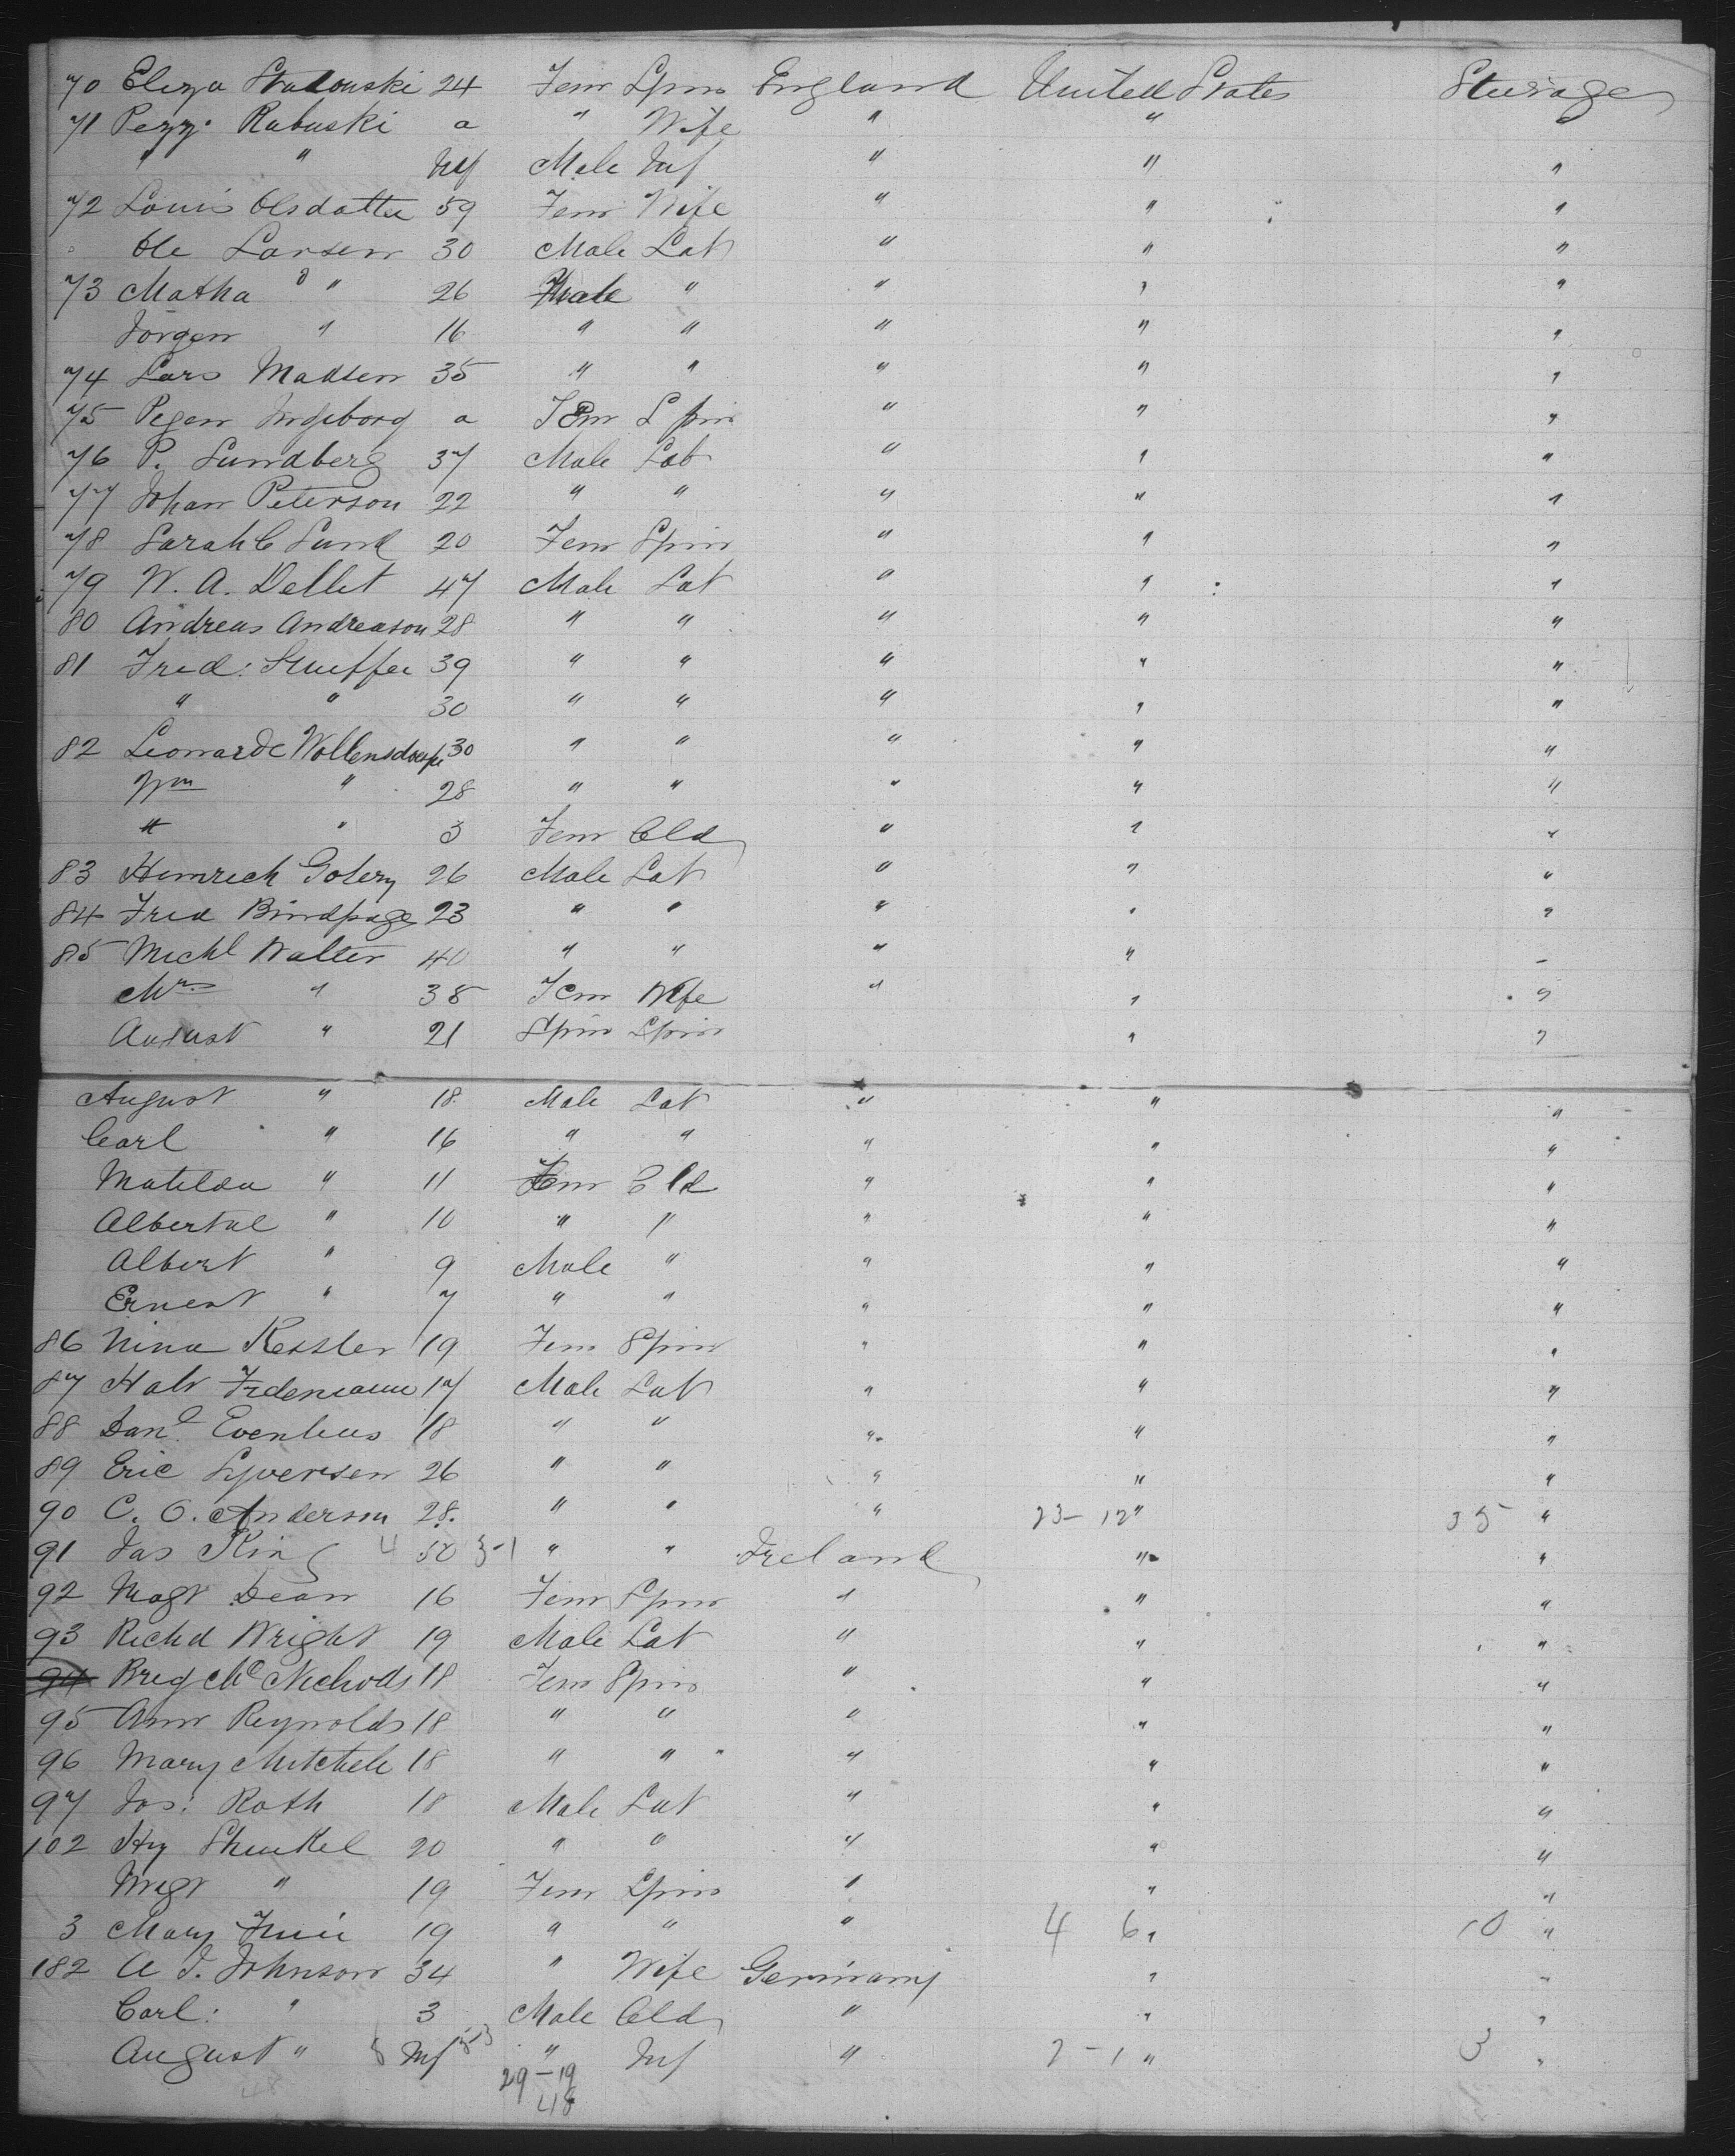 70 Eliza Stadouski 24 Fem Spin England United States Steerage
71 Pezzi Rabuski a " Wife " " "
" " Inf Male Inf " " "
72 Louis Olsdatter 59 Fem Wife " " "
Ole Larsen 30 Male Lab " " "
73 Matha " 26 Male " " " "
Jorgen " 16 " " " " "
74 Lars Madsen 35 " " " " "
75 Pegen Ingeborg a Fem Spin " " "
76 P. Lundberg 37 Male Lab " " "
77 Johan Peterson 22 " " " " "
78 Sarah C Lund 20 Fem Spin " " "
79 W. A. Dellet 47 Male Lab " " "
80 Andreas Andreason 28 " " " " "
81 Fred: 39 " " " " "
" " 30 " " " " "
82 Leonarde 30 " " " " "
Wm " 28 " " " " "
" " 3 Fem Cld " " "
83 Heinrich 26 Male Lab " " "
84 Fred Bindpage 23 " " " " "
85 Michl Walter 40 " " " " "
Mrs " 38 Fem Wife " " "
August " 21 Spin Spin " "
August " 18 Male Lab " " "
Carl " 16 " " " " "
Matilda " 11 Fem Cld " " "
" 10 " " " " "
Albert " 9 Male " " " "
Ernest " 7 " " " " "
86 Nina Kessler 19 Fem Spin " " "
87 17 Male Lab " " "
88 Danl 18 " " " " "
89 Eric Syversen 26 " " " " "
90 C. O. Anderson 28 " " " 23-12 " 35 "
91 Jas King 4 50 3-1 " " Ireland " "
92 Magt Dean 16 Fem Spin " " "
93 Richd Wright 19 Male Lab " " "
94 Brig McNichols 18 Fem Spin " " "
95 Ann Reynolds 18 " " " " "
96 Mary Mitchele 18 " " " " "
97 Jos: Roth 18 Male Lab " " "
102 Hy Shukel 20 " " " " "
Magt " 19 Fem Spin " " "
3 Mary 19 " " " 4 6 " 10 "
182 A J. Johnson 34 " Wife Germany " "
Carl: " 3 Male Cld " " "
August " Inf " Inf " 2-1 " 3 "
48 29-19
48